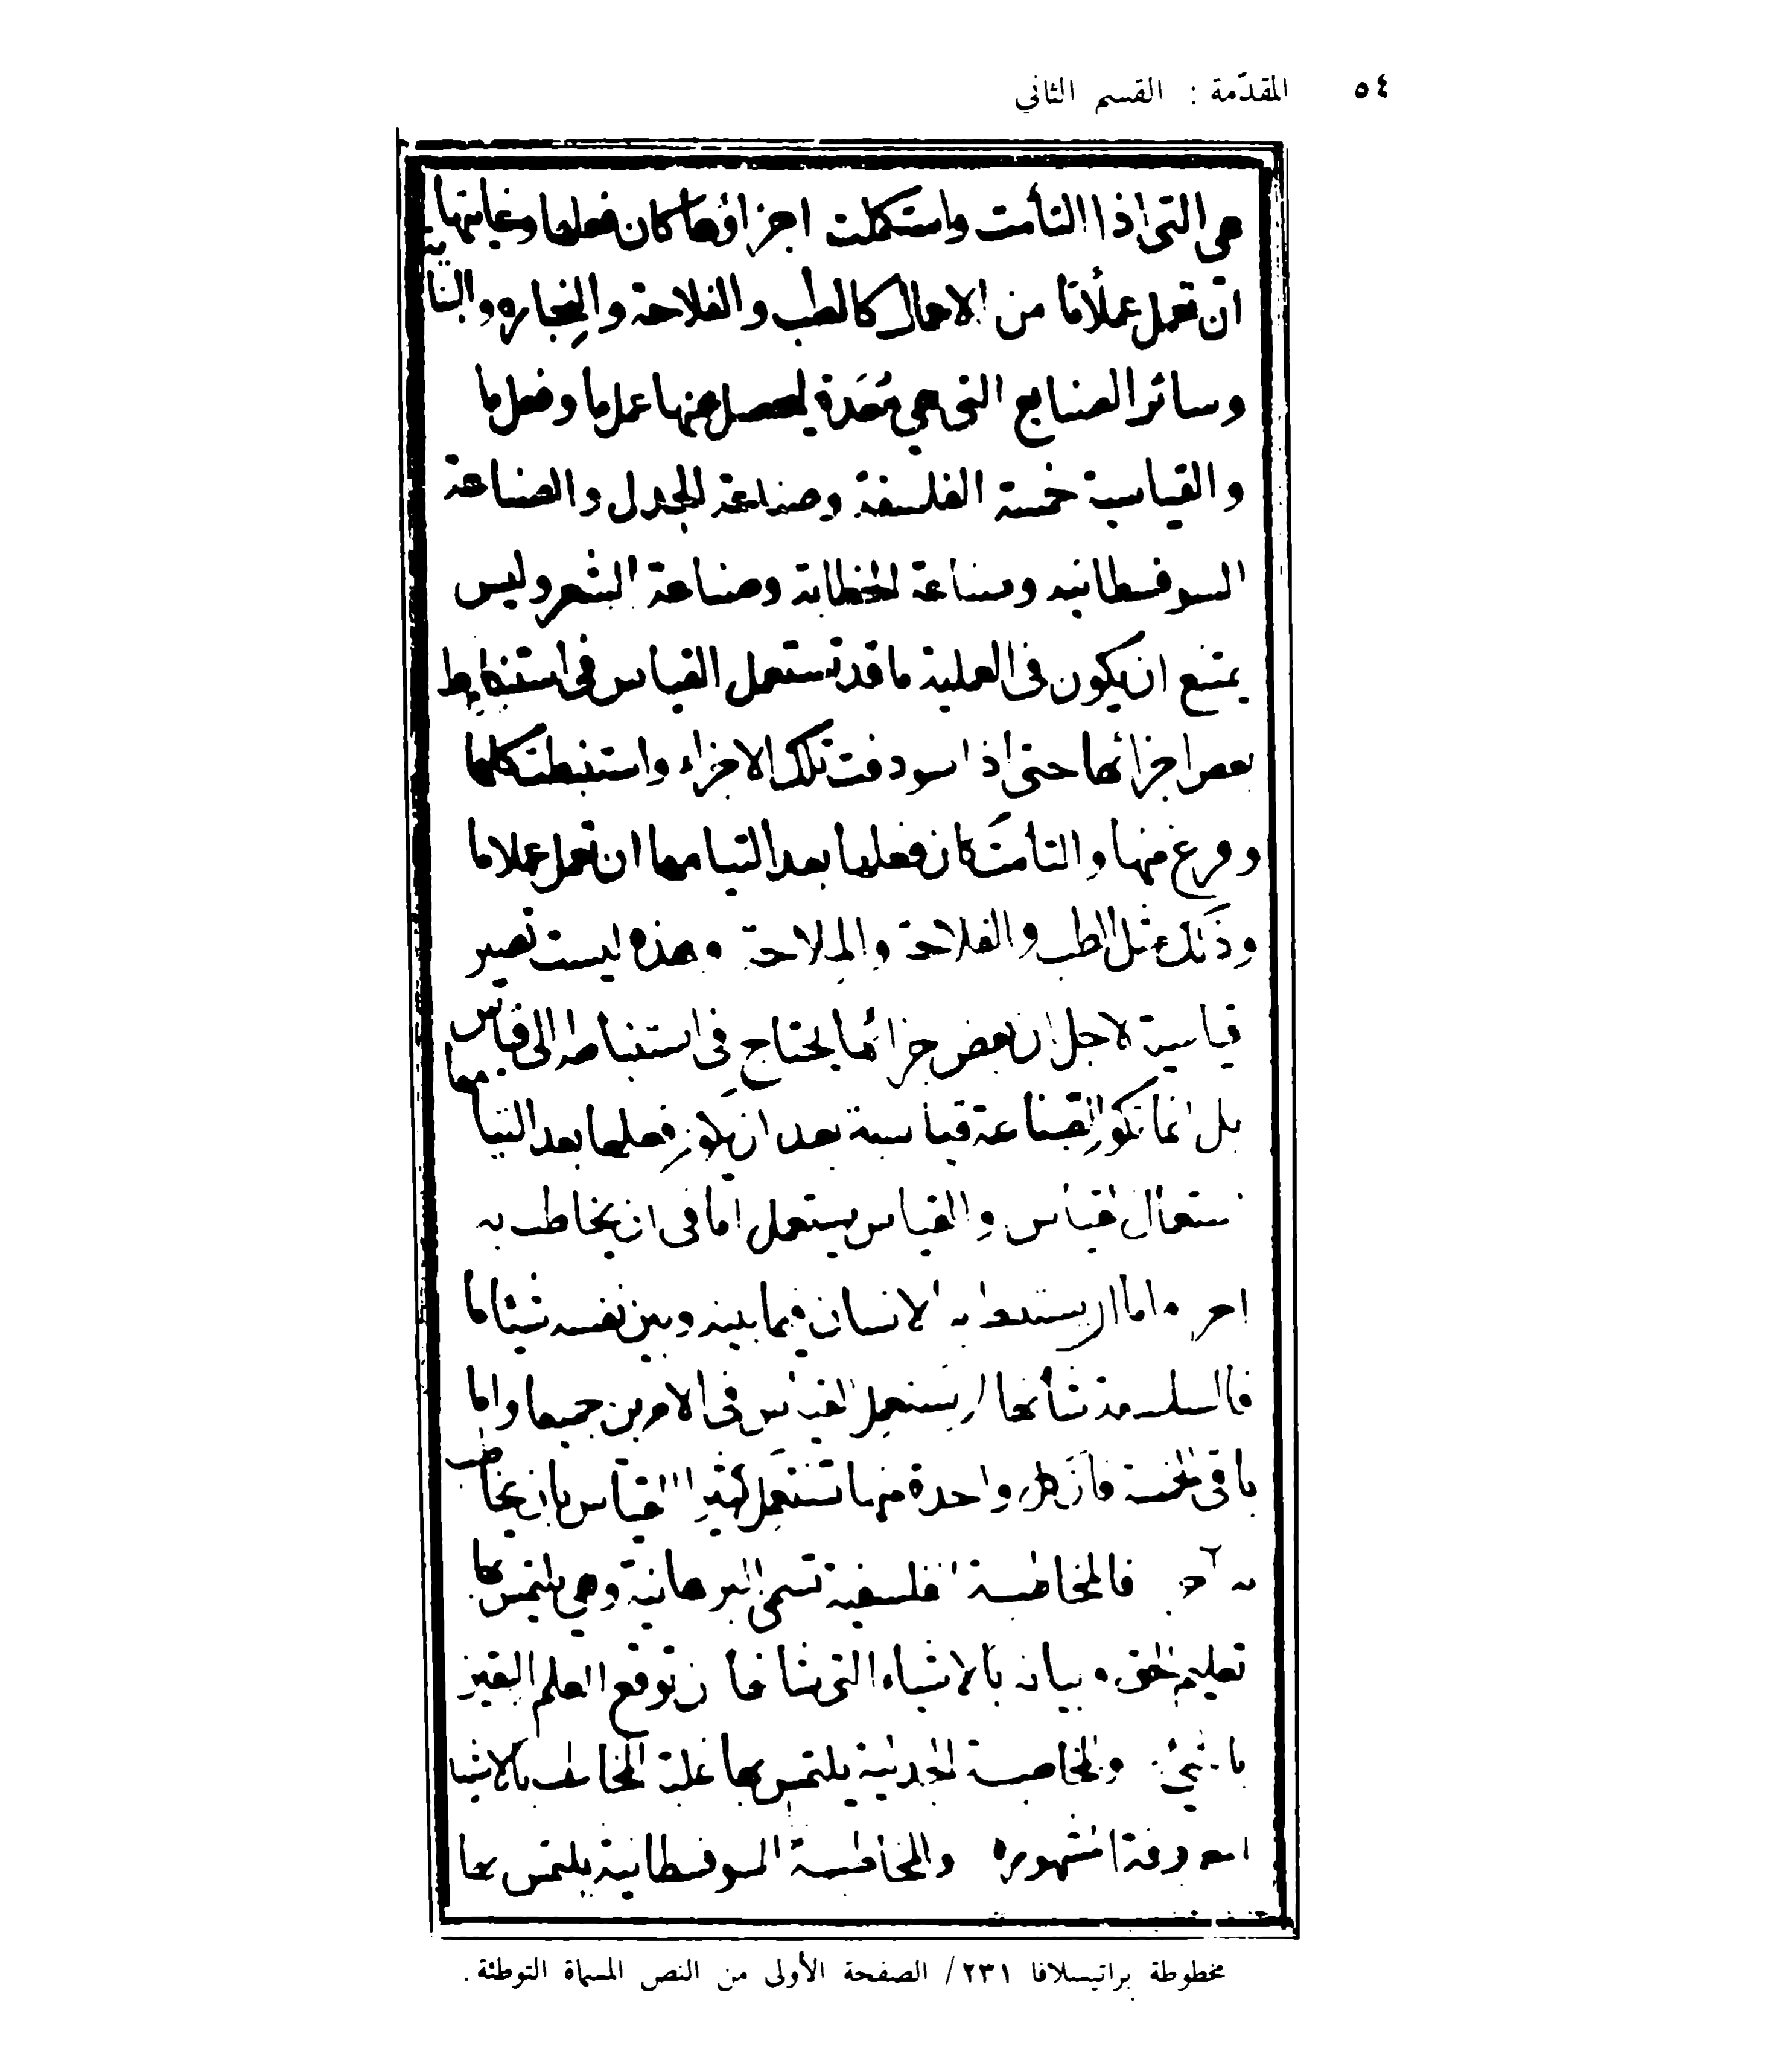 ٥٤ المقدّمة : القسم الثاني
هي التي اذا التأمت واستكملت اجزاؤها كان فعلها وغايتها
ان تعمل عملًا ما من الاعمال كالطب والفلاحة والنجاره والبنا
وسائر الصنايع التي هي مُعَدة ليحصل عنها عمل ما وفعل ما
والقياسية خمسة الفلسفة وصناعة الجدل والصناعة
السوفسطائيه وصناعة الخطابة وصناعة الشعر وليس
يمتنع ان يكون في العملية ما قد تستعمل القياس في استنباط
بعض اجزائها حتى اذا تلك الاجزاء واستنبطت كلها
وفرغ منها والتأمت كان فعلها بعد التيامها ان تعمل عملا ما
وذَلك مثل الطب والفلاحة والملاحة وهذه ليست تصير
قياسية لاجل ان بعض جزائها يحتاج في استنباطه الى قياس
بل انما تكون الصناعة قياسية بعد ان يكون فعلها بعد التيامها
ستعمال القياس والقياس يستعمل اما في ان يخاطب به
اخر واما ان يستنبط به الانسان فيما بينه وبين نفسه شيئا ما
فالفلسفة شأنها ان يستعمل القياس في الامرين جميعا واما
باقي الخمسة فان كل واحدة منها تستعمل القياس بان يخاطب
به آخر فالمخاطبة الفلسفية تسمى البرهانية وهي يلتمس بها
تعليم الحق وبيانه بالاشياء التي شانها ان توقع العلم اليقين
بالشيء والمخاطبة الجدلية يلتمس بها غلبة المخاطب بالاشيا
المعروفة المشهوره والمخاطبة السوفسطائية يلتمس بها
مخطوطة براتيسلافا ٢٣١/ الصفحة الأولى من النص المسماة التوطئة .